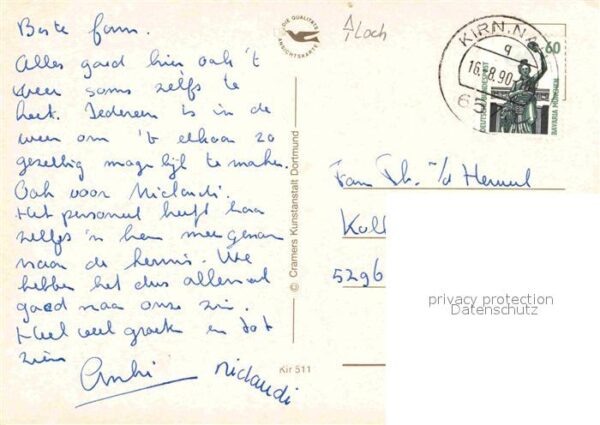 Beste fam.
Alles goed hier ook 't
weer soms zelfs te
heet. Iedereen is in de
weer om 't elkaar zo
gezellig mogelijk te maken.
Ook voor Niclaudi.
Het personeel heeft haar
zelfs 'n keer mee genomen
naar de kermis. We
hebben het dus allemaal
goed naar onze zin.
Heel veel groet en tot
ziens
Niclaudi
DIE QUALITÄTS
ANSICHTSKARTE
© Cramers Kunstanstalt Dortmund
Kir 511
Loch
KIRN, NA
q
16.8.90
65
60
DEUTSCHE BUNDESPOST
BAVARIA MÜNCHEN
Fam Th. v/d
5296
privacy protection
Datenschutz